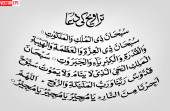 تراویح کی دعا
سُبْحَانَ ذِی الْمُلْکِ وَالْمَلَکُوْتِ
سُبْحَانَ ذِی الْعِزَّةِ وَالْعَظَمَةِ وَالْهَيْبَةِ
وَالْقُدْرَةِ وَالْكِبْرِيَاءِ وَالْجَبَرُوْتِ سُبْحَانَ
الْمَلِكِ الْحَيِّ الَّذِیْ لَا يَنَامُ وَلَا يَمُوْتُ سُبُّوْحٌ
قُدُّوْسٌ رَبُّنَا وَرَبُّ الْمَلَائِكَةِ وَالرُّوْحِ اَللّٰهُمَّ
اَجِرْنَا مِنَ النَّارِ يَا مُجِيْرُ يَا مُجِيْرُ يَا مُجِيْرُ